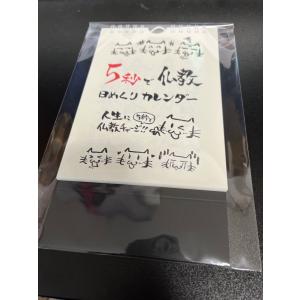 5秒で仏教
日めくりカレンダー
人生に5秒で
仏教チャージ